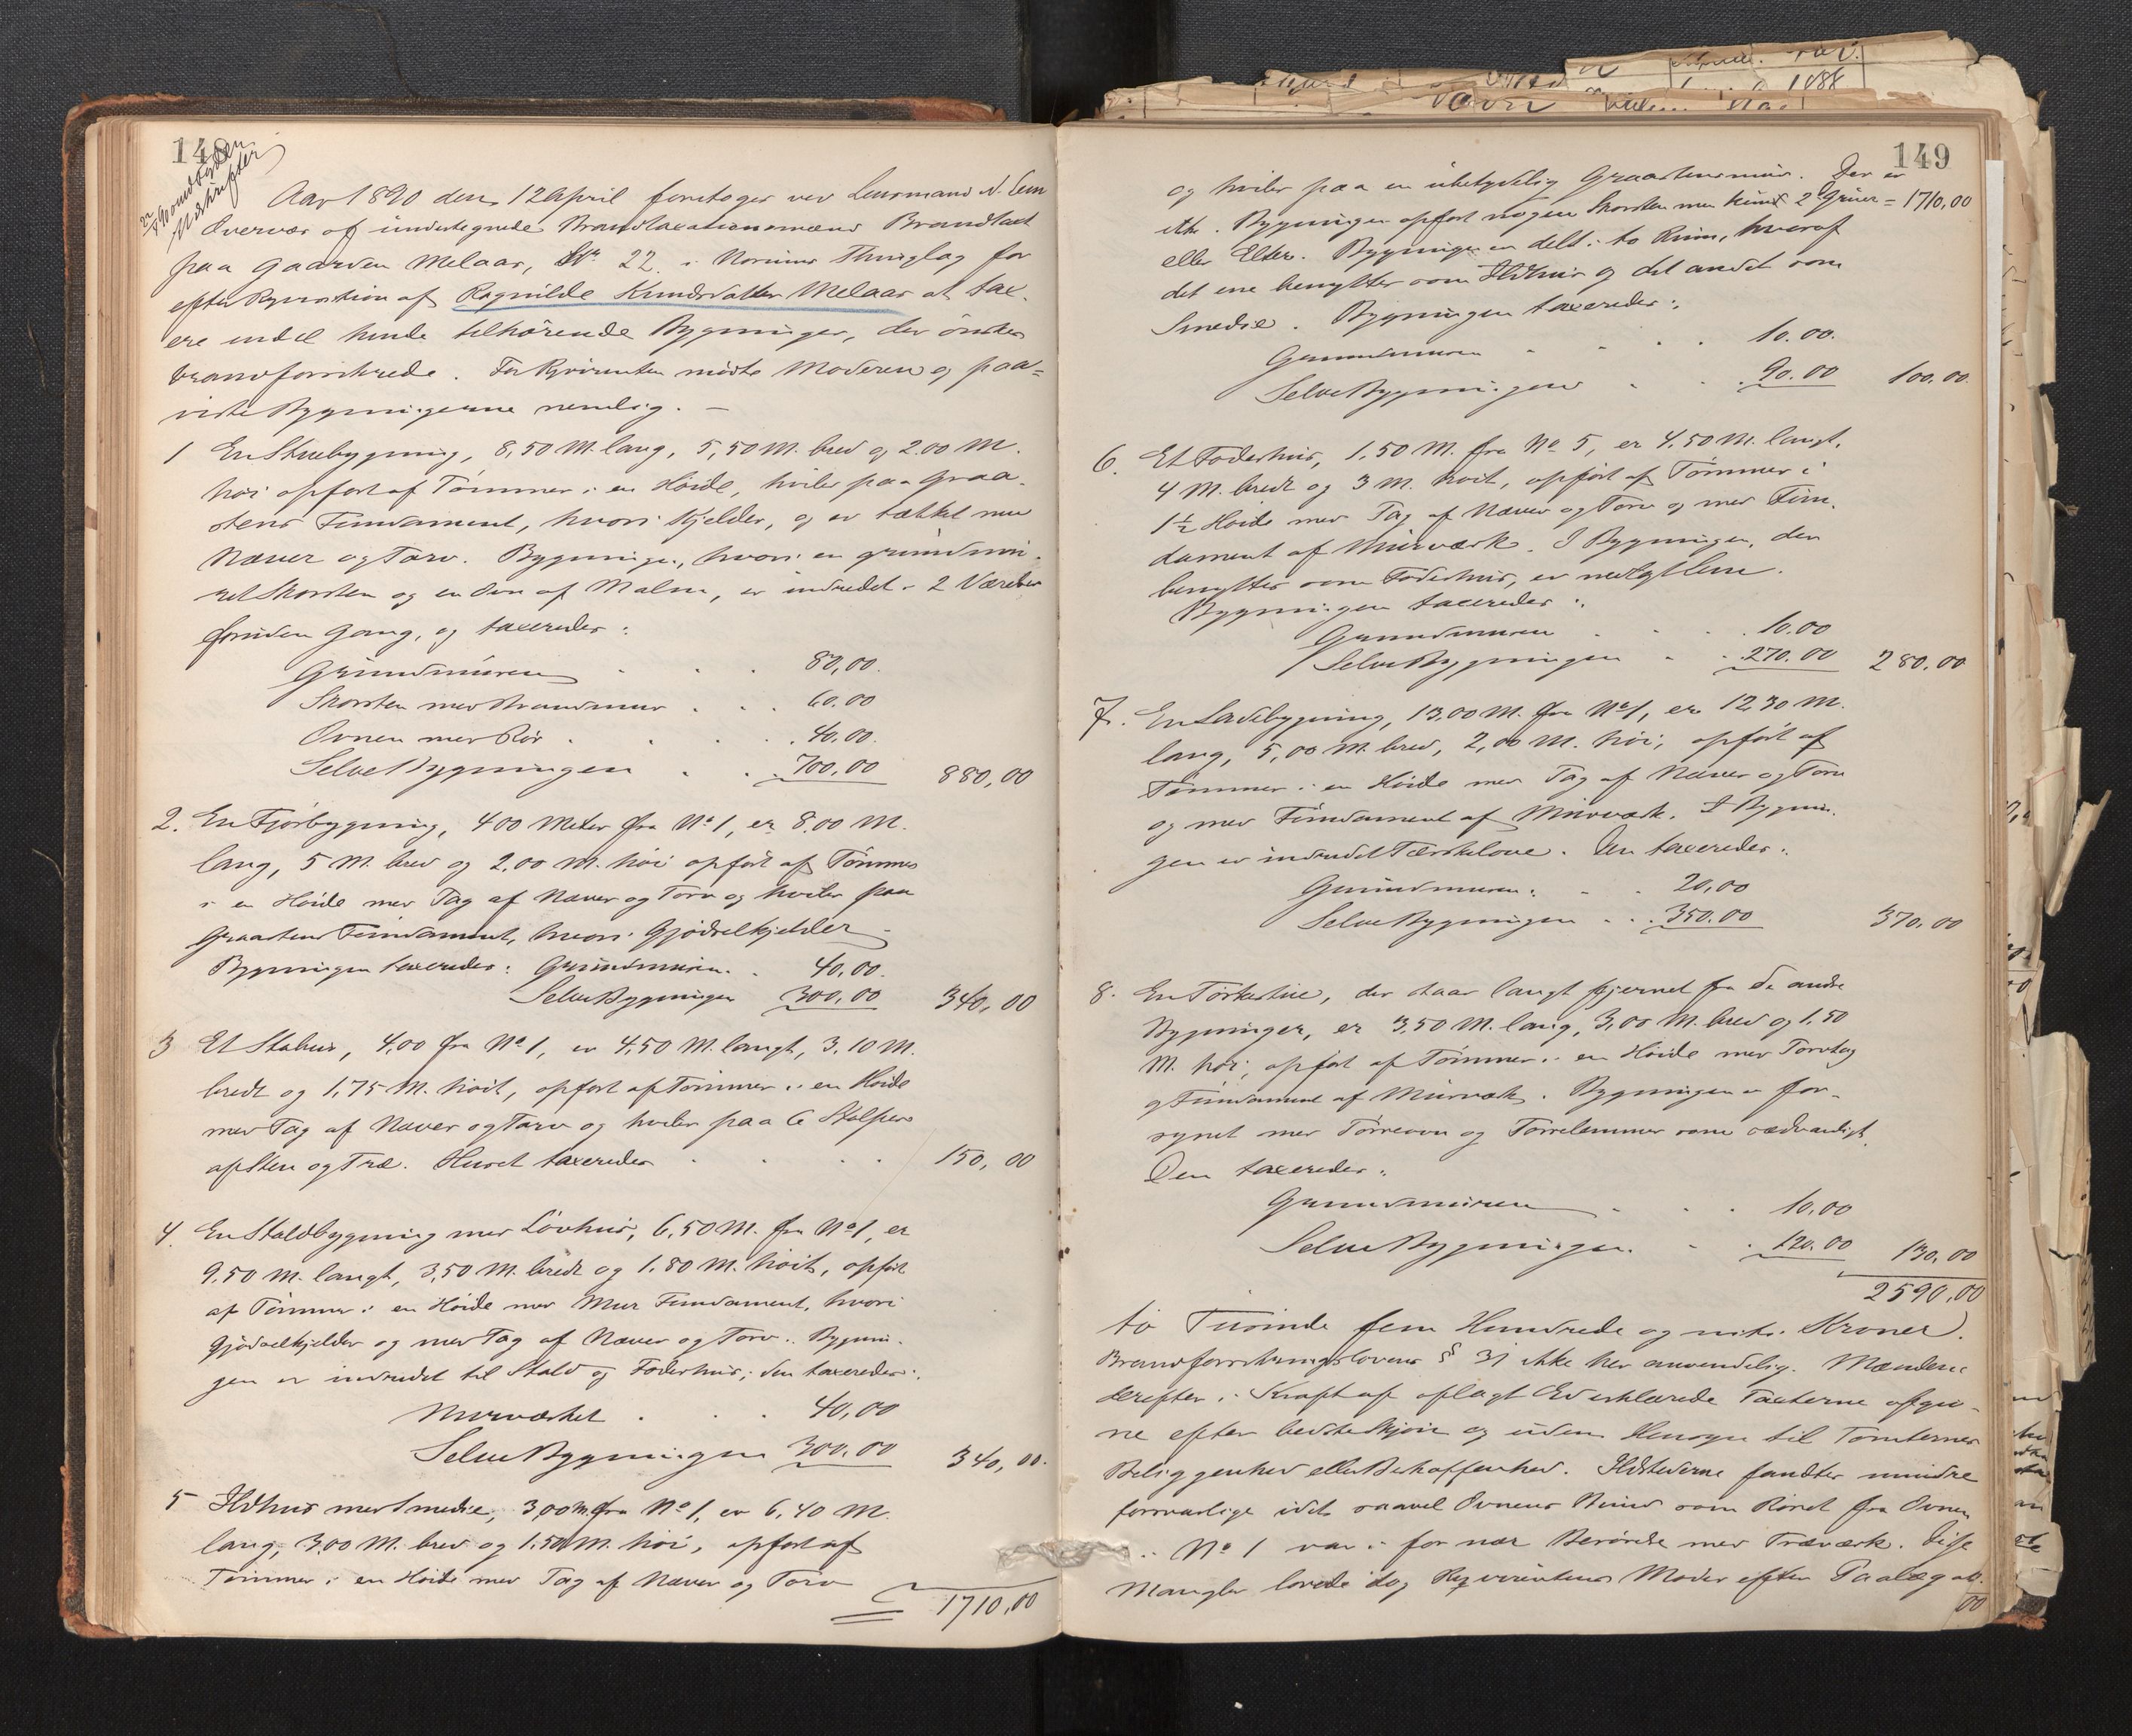 148
Udskrifter
Aar 1890 den 12 April foretoges ved Lensmand N. Lem
Overvær af undertegnede Brandtaxationsmænd Brandtaxt
paa Gaarden Melaas, No 22 i Thinglag for
efter Rqvisition af Ragnilde Knudsdatter Melaas at tax-
ere endel hende tilhörende Bygninger, der önskes
brandforsikrede. For Rqvirenten mödte Moderen og paa=
viste Bygningerne nemlig. –
1 En Stuebygning, 8,50 M. lang, 5,50 M. bred og 2.00 M.
höi opfört af Tömmer i en Höide, hviler paa Graa-
stens Fundament, hvori Kjelder, og er tækket med
Næver og Torv. Bygningen, hvori en grundmu-
ret Skorsten og en Ovn af Malm, er indredet i 2 Værelser
foruden Gang, og taxeredes:
Grundmuren . . . 80,00.
Skorsten med Brandmur . . . 60.00
Ovnen med Rör . . . 40.00.
Selve Bygningen . . 700,00 880,00
2. En Fjösbygning, 400 Meter fra No 1, er 8.00 M.
lang, 5 M. bred og 2,00 M. höi opfört af Tömmer
i en Höide med Tag af Næver og Torv og hviler paa
Graastens Fundament, hvori Gjödselkjelder –
Bygningen taxeredes: Grundmuren . . 40,00.
Selve Bygningen 300,00 340,00
3 Et Stabur, 4,00 fra No 1, er 4,50 M. langt, 3,10 M.
bredt og 1,75 M. höit, opfört af Tömmer i en Höide
med Tag af Næver og Torv og hviler paa 6 Stolper
af Sten og Træ. Huset taxeredes . . . 150,00
4. En Staldbygning med Lövhus, 6,50 M. fra No 1, er
9.50 M. langt, 3,50 M. bredt og 1.80 M. höit, opfört
af Tömmer i en Höide med Mur Fundament, hvori
Gjödselkjelder og med Tag af Næver og Torv. Bygnin-
gen er indredet til Stald og Foderhus; den taxeredes:
Murværket . . . 40,00
Selve Bygningen 300.00 340,00.
5 Ildhus med Smedie, 3,00 M. fra No 1, er 6,40 M.
lang, 3,00 M. bred og 1.50 M. höi, opfört af
Tömmer i en Höide med Tag af Næver og Torv
1710,00
149
og hviler paa en ubetydelig Graastensmur. Der er = 1710,00
ikke i Bygningen opfört nogen Skorsten men kun 2 Gruer
eller Elter. Bygningen er delt i to Rum, hvoraf
det ene benyttes som Ildhus og det andet som
Smedie. Bygningen taxeredes:
Grundmuren . . . 10.00.
Selve Bygningen . . 90.00 100.00.
6. Et Foderhus, 1.50 M. fra No 5, er 4.50 M. langt,
4 M. bredt og 3 M. höit, opfört af Tömmer i
1½ Höide med Tag af Næver og Torv og med Fun-
dament af Murværk. I Bygningen, der
benyttes som Foderhus, er nedlagt Lem.
Bygningen taxeredes:
Grundmuren . . . 10.00
Selve Bygningen . . 270.00 280,00
7. En Ladebygning, 13,00 M. fra No 1, er 12,30 M.
lang, 5,00 M. bred, 2,00 M. höi, opfört af
Tömmer i en Höide med Tag af Næver og Torv
og med Fundament af Murværk. I Bygnin-
gen er indredet Tærskelove. Den taxeredes:
Grundmuren . . 20,00
Selve Bygningen . . . 350.00 370,00
8. En Törkestue, der staar langt fjernet fra de andre
Bygninger, er 3,50 M. lang, 3,00 M. bred og 1,50
M. höi, opfört af Tömmer i en Höide med Torvtag
og Fundament af Murværk. Bygningen er for-
synet med Törreovn og Törrelemmer som sædvanligt.
Den taxeredes:
Grundmuren . . . 10,00
Selve Bygningen . . 120.00 130,00
2590,00
to Tusinde fem Hundrede og niti Kroner.
Brandforsikringslovens § 31 ikke her anvendelig. Mændene
derefter i Kraft af aflagt Ed erklærede Taxterne afgiv-
ne efter bedste Skjön og uden Hensyn til Tomternes
Beliggenhed eller Beskaffenhed. Ildstederne fandtes mindre
forsvarlige idet saavel Ovnens Bund som Röret fra Ovnen
i No 1 var i for nær Berörelse med Træværk. Disse
Mangler lovede dog Rqvirentens Moder efter Paalæg at